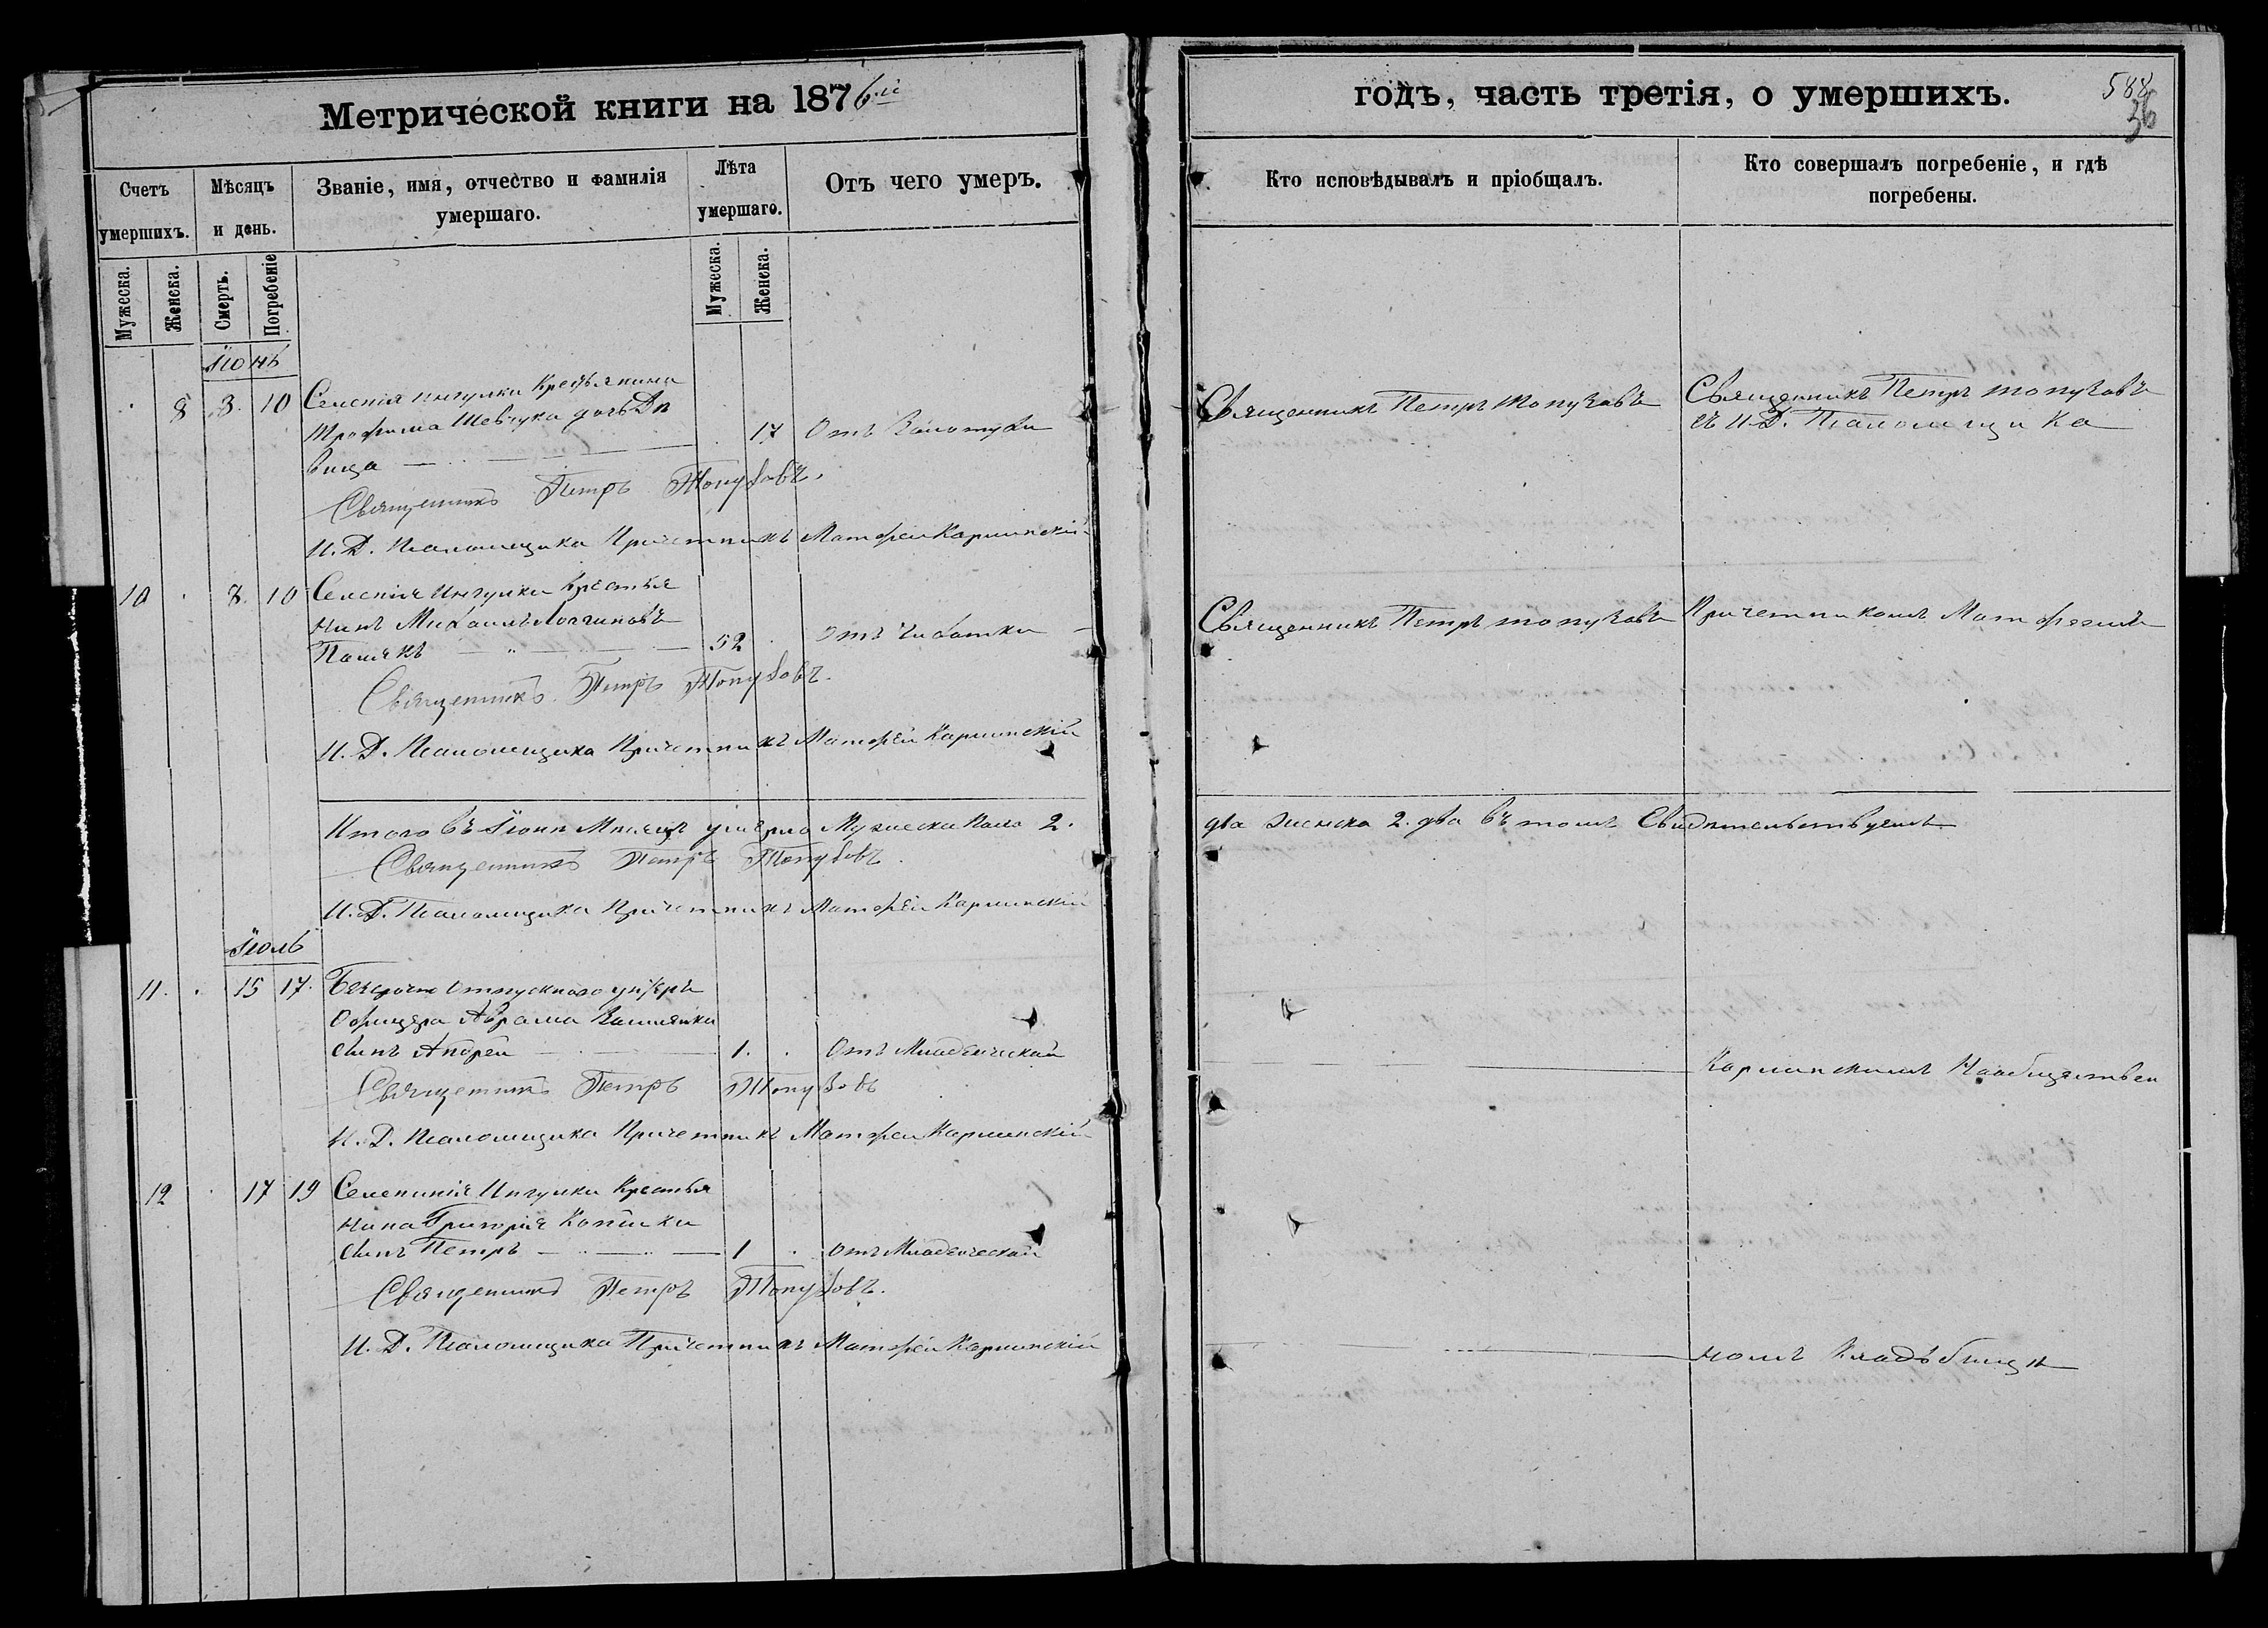 Метрической книги на 1876й
Счетъ умершихъ.
Мѣсяцъ и день.
Званіе, имя, отчество и фамилія умершаго.
Лѣта умершаго.
Отъ чего умеръ.
Мужеска.
Женска.
Смерть.
Погребеніе
Мужеска.
Женска.
Іюнь
8 8. 10 Селенія Ингулки Крестьянина
Трофима Шевчука дочь Дѣ
вица 17 Отъ
Священникъ Петръ Топузовъ.
И. Д. Псаломщика Причетникъ Матфей Карминскій
10 8. 10 Селенія Ингулки Крестья
нинъ Михаилъ Логгиновъ
52 отъ Чихотки
Священникъ Петръ Топузовъ.
И. Д. Псаломщика Причетникъ Матфей Карминскій
Итого въ Іюнѣ Мѣсяцѣ умерло Мужеска Пола 2.
Священникъ Петръ Топузовъ.
И. Д. Псаломщика Причетникъ Матфей Карминскій
Іюль
11. 15 17. Безсрочно Отпускнаго унтеръ
Офицера Аврама
сынъ Андрей 1. Отъ Младенческой
Священникъ Петръ Топузовъ
И. Д. Псаломщика Причетникъ Матфей Карминскій
12 17 19 Селенія Ингулки Крестья
нина Григорія Копійки
сынъ Петръ 1 отъ Младенческой
Священникъ Петръ Топузовъ.
И. Д. Псаломщика Причетникъ Матфей Карминскій
годъ, часть третія, о умершихъ.
588
36
Кто исповѣдывалъ и пріобщалъ.
Кто совершалъ погребеніе, и гдѣ погребены.
Священникъ Петръ Топузовъ
Священникъ Петръ Топузовъ
съ И. Д. Псаломщика
Священникъ Петръ Топузовъ
Причетникомъ Матфеемъ
два женска 2. два въ томъ Свидѣтельствуемъ
Карминскимъ На обществен
номъ Кладъбищѣ